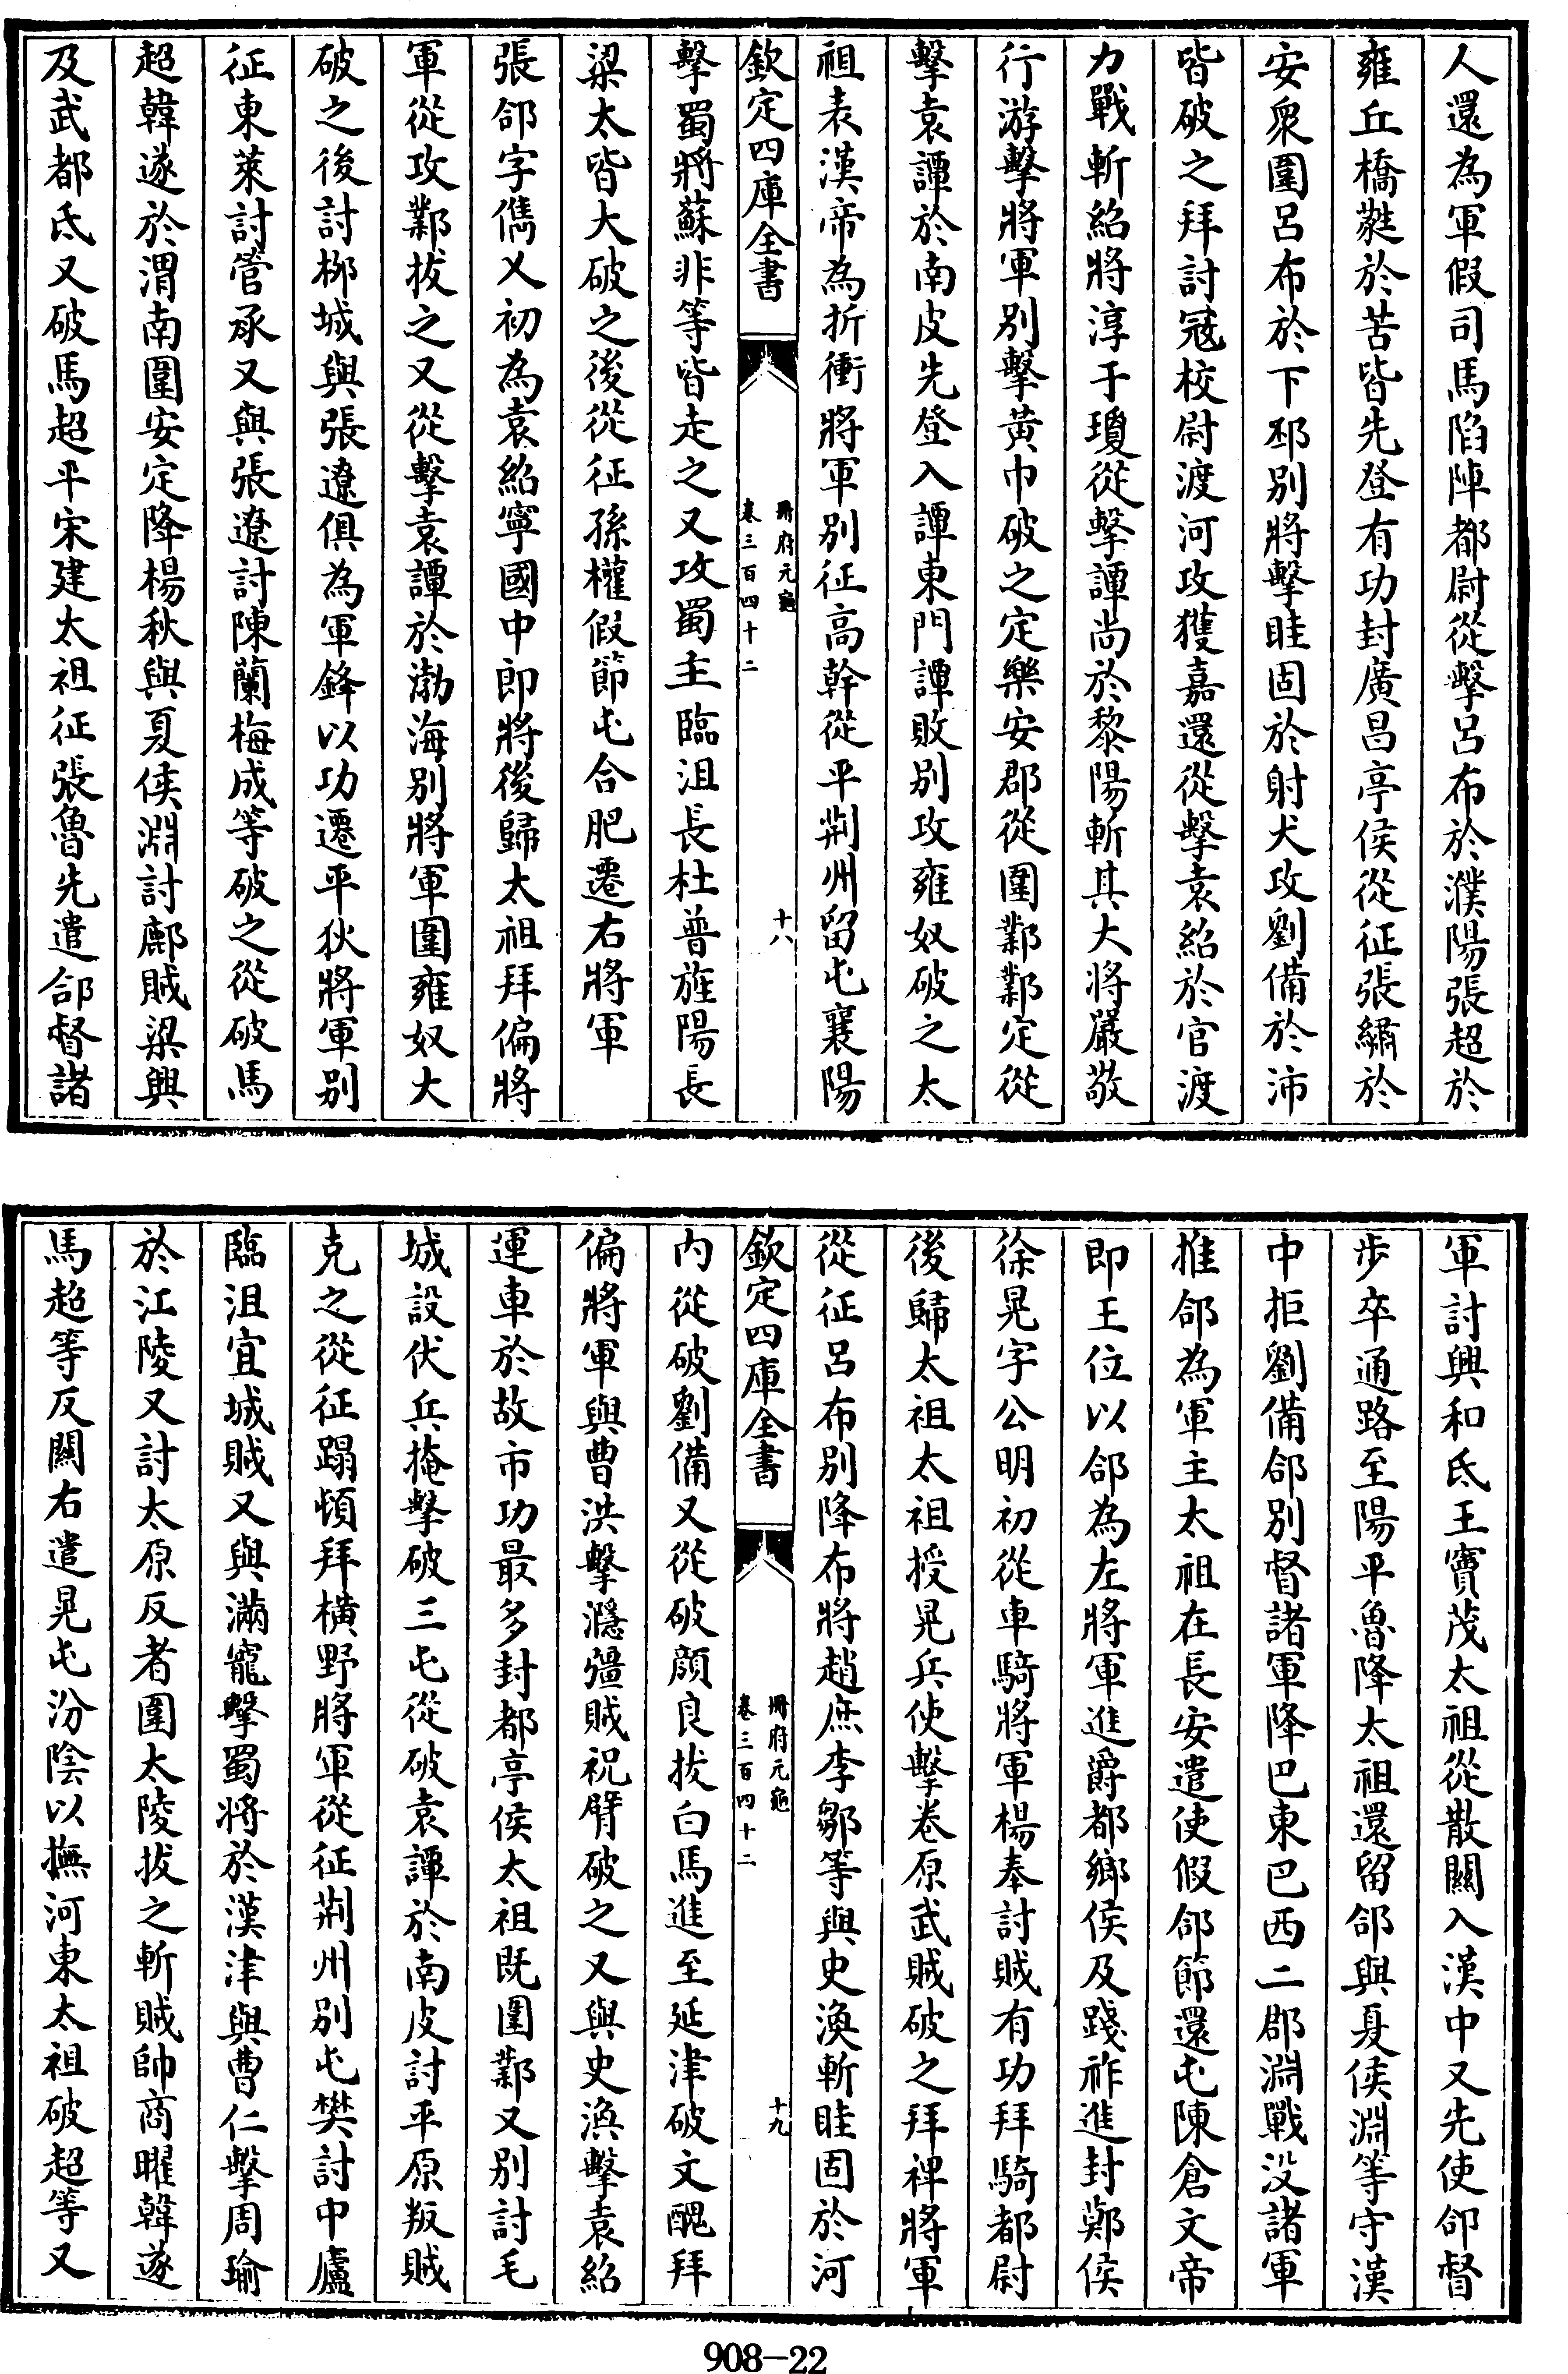 人還為軍假司馬陷陣都尉從擊呂布於濮陽張超於
雍丘橋蕤於苦皆先登有功封廣昌亭侯從征張繡於
安衆圍呂布於下邳別將擊眭固於射犬攻劉備於沛
皆破之拜討冦校尉渡河攻獲嘉還從擊袁紹於官渡
力戰斬紹將淳于瓊從擊譚尚於黎陽斬其大將嚴敬
行游擊將軍別擊黃巾破之定樂安郡從圍鄴鄴定從
擊袁譚於南皮先登入譚東門譚敗別攻雍奴破之太
祖表漢帝為折衝將軍別征高幹從平荆州留屯襄陽
欽定四庫全書
冊府元龜
卷三百四十二
十八
擊蜀將蘇非等皆走之又攻蜀主臨沮長杜普旌陽長
梁太皆大破之後從征孫權假節屯合肥遷右將軍
張郃字儁乂初為袁紹寧國中郎將後歸太祖拜偏將
軍從攻鄴拔之又從擊袁譚於渤海別將軍圍雍奴大
破之後討栁城與張遼俱為軍鋒以功遷平狄將軍別
征東萊討管承又與張遼討陳蘭梅成等破之從破馬
超韓遂於渭南圍安定降楊秋與夏侯淵討鄜賊梁興
及武都氐又破馬超平宋建太祖征張魯先遣郃督諸
軍討興和氐王竇茂太祖從散關入漢中又先使郃督
步卒通路至陽平魯降太祖還留郃與夏侯淵等守漢
中拒劉備郃別督諸軍降巴東巴西二郡淵戰没諸軍
推郃為軍主太祖在長安遣使假郃節還屯陳倉文帝
即王位以郃為左將軍進爵都鄉侯及踐祚進封鄭侯
徐晃字公明初從車騎將軍楊奉討賊有功拜騎都尉
後歸太祖太祖授晃兵使擊卷原武賊破之拜裨將軍
從征呂布別降布將趙庶李鄒等與史渙斬眭固於河
欽定四庫全書
冊府元龜
卷三百四十二
十九
内從破劉備又從破顔良拔白馬進至延津破文醜拜
偏將軍與曹洪擊㶏彊賊祝臂破之又與史渙擊袁紹
運車於故市功最多封都亭侯太祖既圍鄴又別討毛
城設伏兵掩擊破三屯從破袁譚於南皮討平原叛賊
克之從征蹋頓拜横野將軍從征荆州別屯樊討中廬
臨沮宜城賊又與滿寵擊蜀將於漢津與曹仁擊周瑜
於江陵又討太原反者圍太陵拔之斬賊帥商曜韓遂
馬超等反關右遣晃屯汾陰以撫河東太祖破超等又
908-22